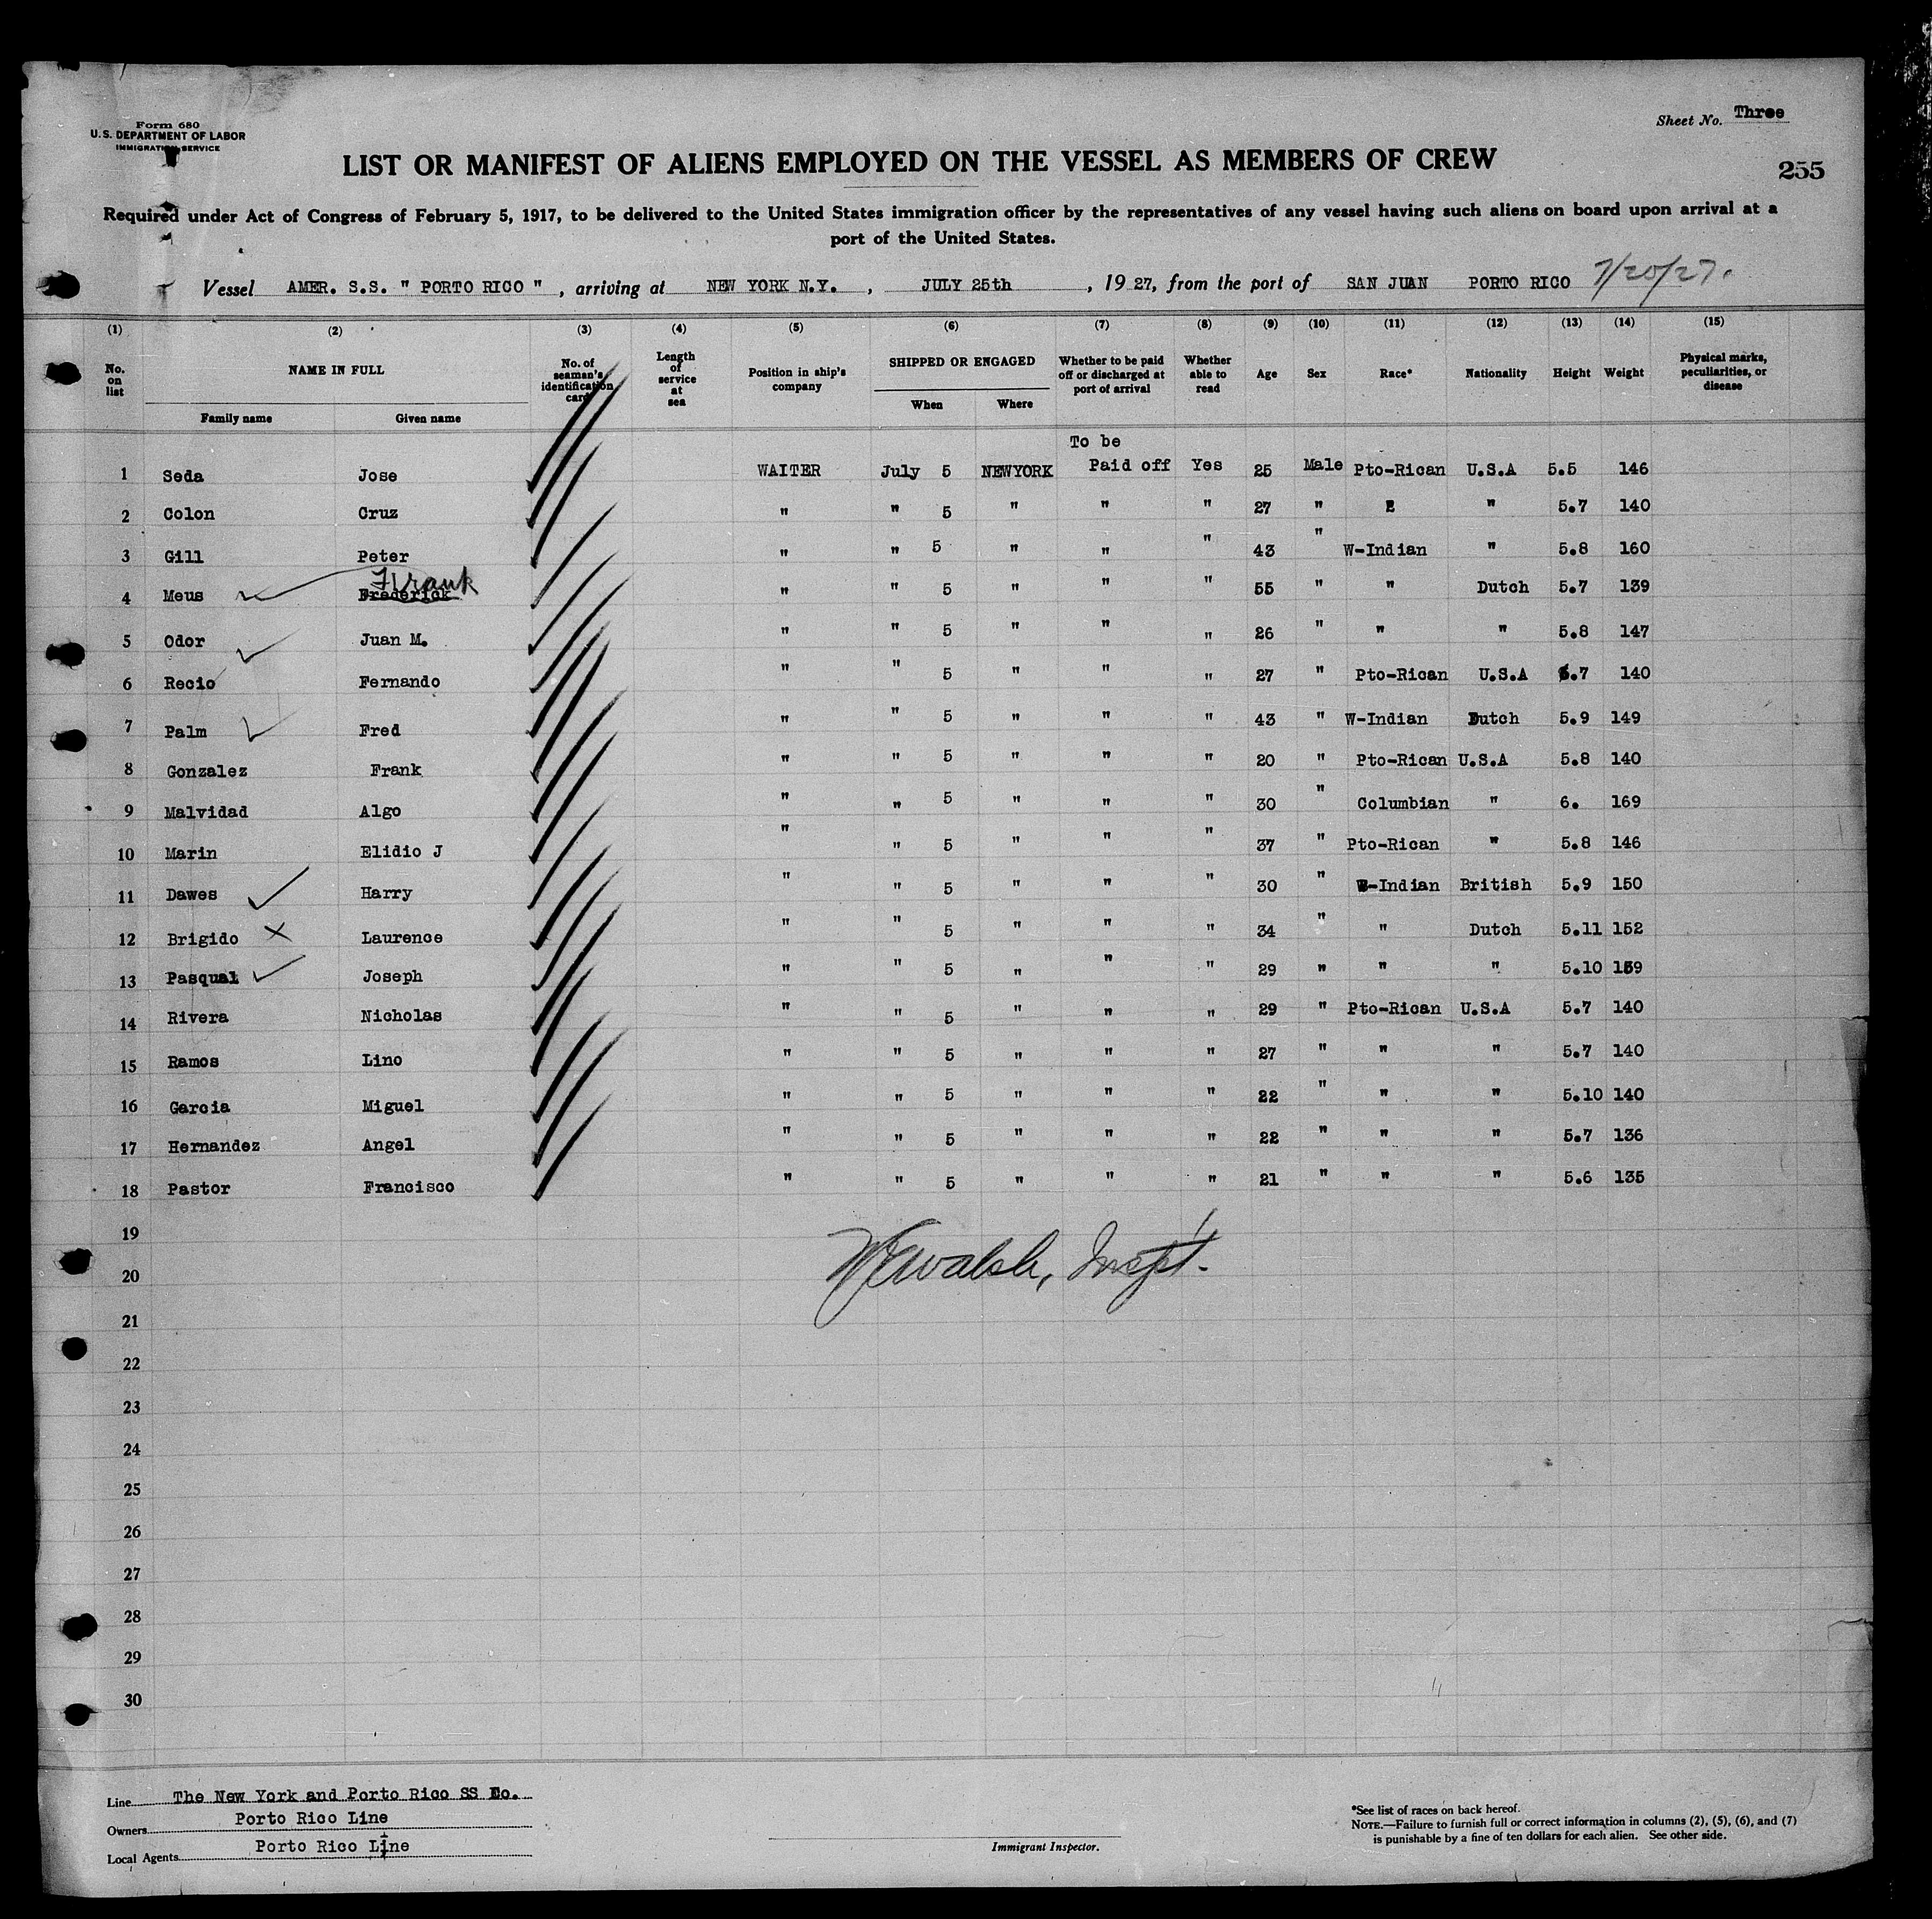 Form 680
U.S. DEPARTMENT OF LABOR
IMMIGRATION SERVICE
Sheet No. Three
LIST OR MANIFEST OF ALIENS EMPLOYED ON THE VESSEL AS MEMBERS OF CREW
255
Required under Act of Congress of February 5, 1917, to be delivered to the United States immigration officer by the representatives of any vessel having such aliens on board upon arrival at a
port of the United States.
Vessel AMER. S.S. " PORTO RICO " , arriving at NEW YORK N.Y. , JULY 25th , 19 27, from the port of SAN JUAN PORTO RICO 7/20/27.
(1) (2) (3) (4) (5) (6) (7) (8) (9) (10) (11) (12) (13) (14) (15)
No. on list NAME IN FULL No. of seaman's identification card Length of service at sea Position in ship's company SHIPPED OR ENGAGED Whether to be paid off or discharged at port of arrival Whether able to read Age Sex Race* Nationality Height Weight Physical marks, peculiarities, or disease
Family name Given name When Where
To be
1 Seda Jose WAITER July 5 NEWYORK Paid off Yes 25 Male Pto-Rican U.S.A 5.5 146
2 Colon Cruz " " 5 " " " 27 " " 5.7 140
3 Gill Peter " " 5 " " " 43 " W-Indian " 5.8 160
Frank
4 Meus Frederick " " 5 " " " 55 " " Dutch 5.7 139
5 Odor Juan M. " " 5 " " " 26 " " " 5.8 147
6 Recio Fernando " " 5 " " " 27 " Pto-Rican U.S.A 5.7 140
7 Palm Fred " " 5 " " " 43 " W-Indian Dutch 5.9 149
8 Gonzalez Frank " " 5 " " " 20 " Pto-Rican U.S.A 5.8 140
9 Malvidad Algo " " 5 " " " 30 " Columbian " 6. 169
10 Marin Elidio J " " 5 " " " 37 " Pto-Rican " 5.8 146
11 Dawes Harry " " 5 " " " 30 " W-Indian British 5.9 150
12 Brigido Laurence " " 5 " " " 34 " " Dutch 5.11 152
13 Pasqual Joseph " " 5 " " " 29 " " " 5.10 159
14 Rivera Nicholas " " 5 " " " 29 " Pto-Rican U.S.A 5.7 140
15 Ramos Lino " " 5 " " " 27 " " " 5.7 140
16 Garcia Miguel " " 5 " " " 22 " " " 5.10 140
17 Hernandez Angel " " 5 " " " 22 " " " 5.7 136
18 Pastor Francisco " " 5 " " " 21 " " " 5.6 135
19
Walsh, Inspt.
20
21
22
23
24
25
26
27
28
29
30
Line The New York and Porto Rico SS Co.
Owners Porto Rico Line
Local Agents Porto Rico Line
Immigrant Inspector.
*See list of races on back hereof.
NOTE.—Failure to furnish full or correct information in columns (2), (5), (6), and (7)
is punishable by a fine of ten dollars for each alien. See other side.